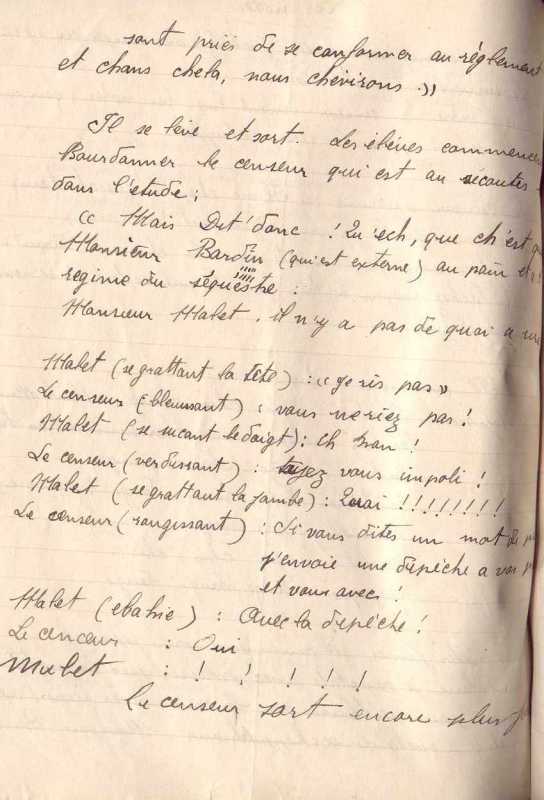 sont priés de se conformer au réglement
et chans chela, nous chévirons . ))
Il se lève et sort. Les élèves commencent
Bourdonner le censeur qui est au écoutes
dans l'étude :
(( Mais Dit' donc ! Qu'ech, que ch'est
Monsieur Bardin (qui est externe) au pain et
régime du séquestre :
Monsieur Malet . il n'y a pas de quoi a
Malet (se grattant la tête) : « ge ris pas »
Le censeur (bleuissant) : vous ne riez pas !
Malet (se sucant le doigt) : Ch' bon !
Le censeur (verdissant) : tayez vous impoli !
Malet (se grattant la jambe) : Quoi !!!!!!!!
Le censeur (rougissant) : Si vous dites un mot de
j'envoie une dépêche a vos
et vous avec !
Malet (ebahie) : Avec la dépêche !
Le censeur : Oui
Malet : ! ! ! ! !
Le censeur sort encore plus